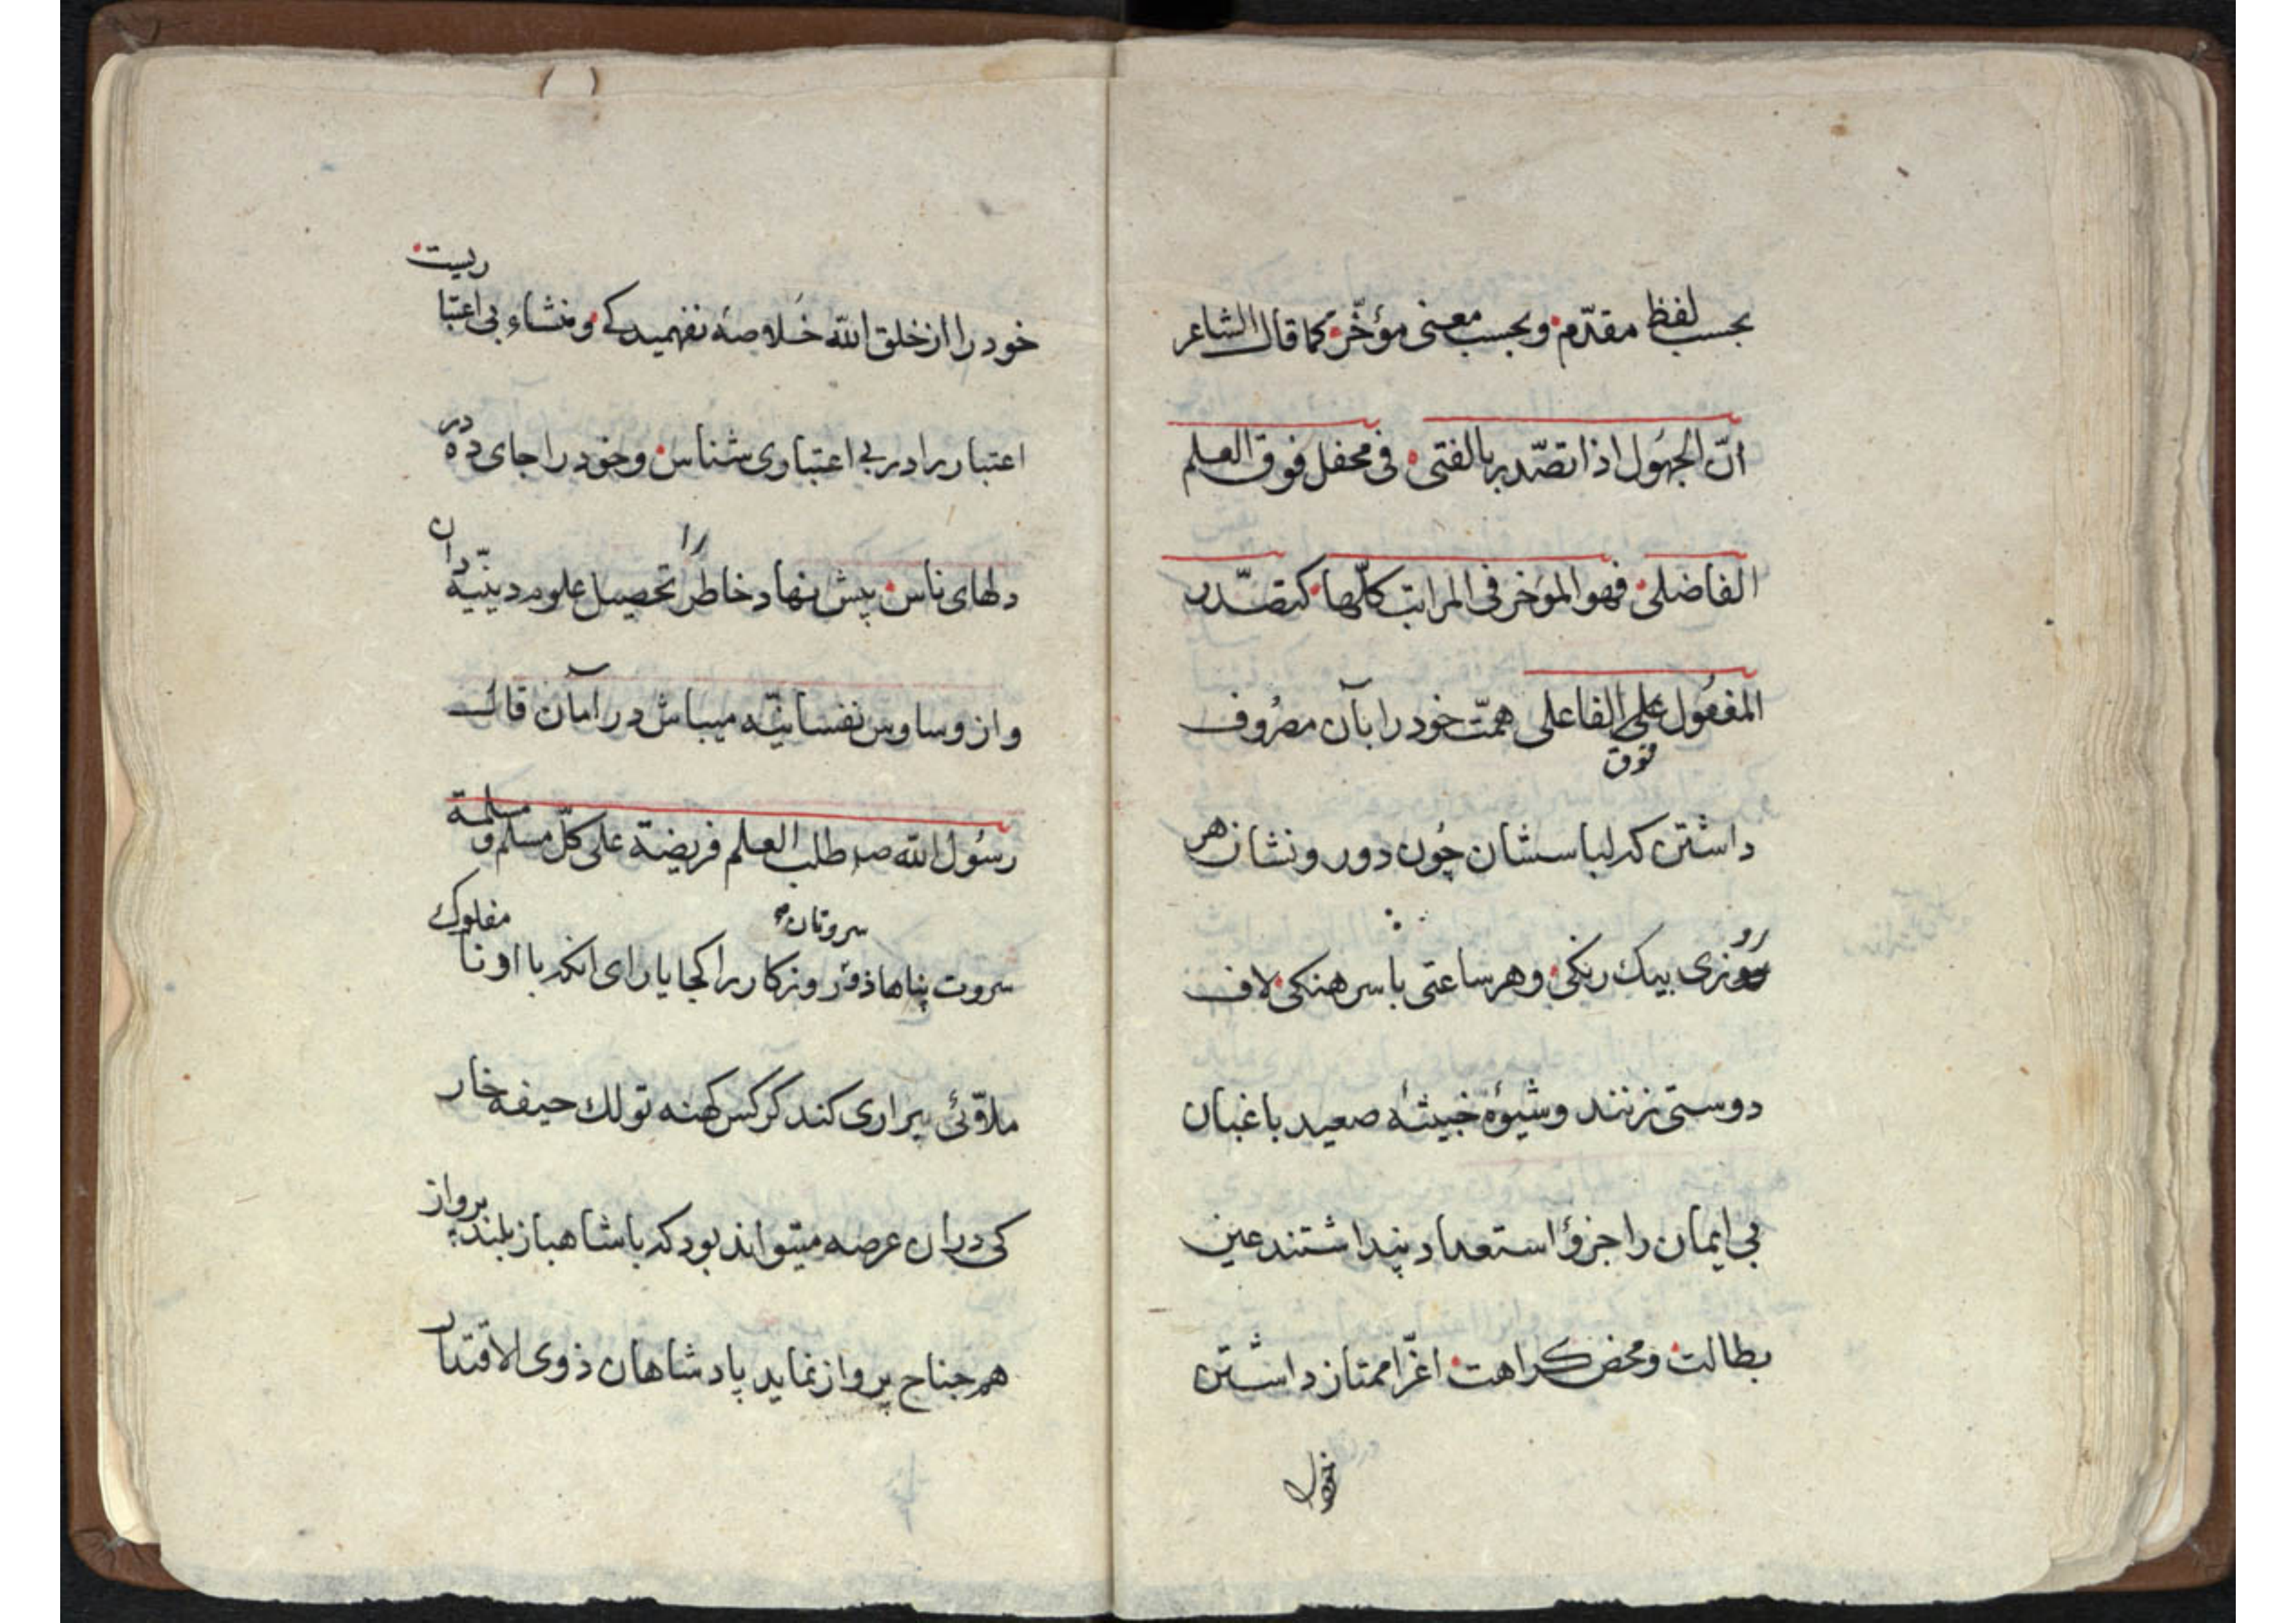 بحسب لفظ مقدّم و بحسب معنی مؤخّر کما قال الشاعر
انّ الجهُول اذا تصّدر بالفتی فی محفل فوق العلم
الفاضلی فهو المؤخر فی المراتب کلّها کتصّدر
المفعُول علی الفاعلی همّت خود را بآن مصرُوف
فوق
داشتن که لباسشان چُون دور و نشان هر
روزی بیک رنکی و هر ساعتی با سرهنکی لاف
دوستی زنند و شیوهٔ خبیثهٔ صعید باغبان
بی ایمان را جزؤ استعداد پنداشتند عین
بطالت و محض کراهت اغّرا ممتاز داشتن
خود را از خلق الله خلاصهٔ نفهمیدکی و منشاء بی اعتباریست
اعتبار را در بی اعتباری شناس و خود را جای ده در
دلهای ناس پیش نهاد خاطر را تحصیل علوم دینیّه دان
و از وساوس نفسانیّه میباش در امان قال
رسُول الله صم طلب العلم فریضة علی کلّ مسلم و مسلمة
سروت پناها ذرّه روزکار را کجا یارای انکه با او نا مفلوک
سروتان
ملاقئ برابری کند کرکس کهنه تولك حیفه خار
کی دران عرصه میتواند بود که با شاهباز بلند پرواز
هم جناح پرواز نماید پادشاهان ذوی الاقتدار